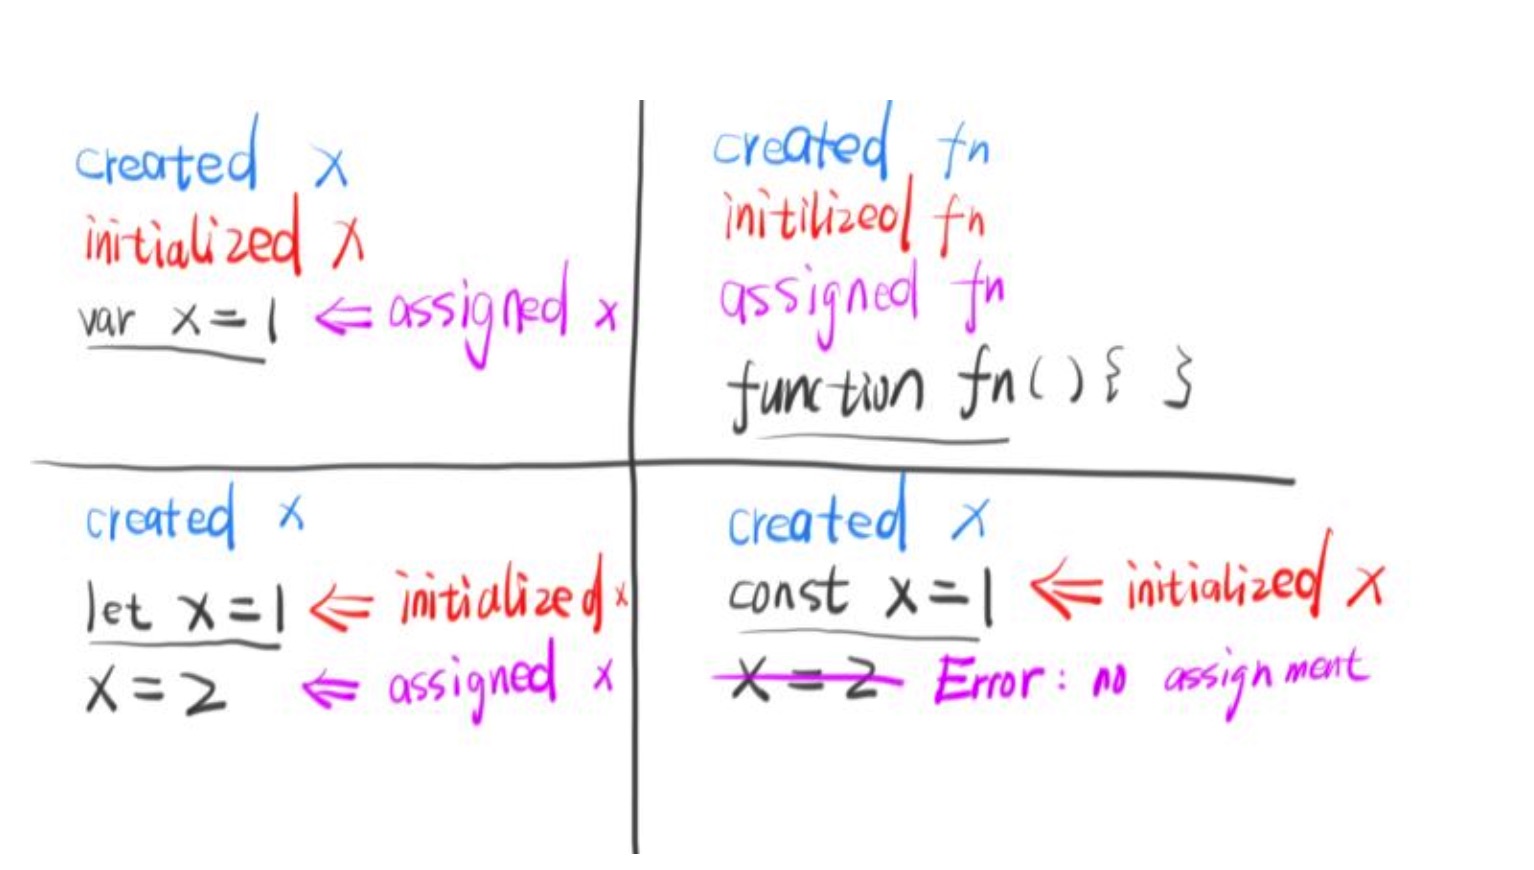 created x
initialized x
var x = 1 ⇐ assigned x
created fn
initilized fn
assigned fn
function fn ( ) { }
created x
let x = 1 ⇐ initialized x
x = 2 ⇐ assigned x
created x
const x = 1 ⇐ initialized x
x = 2 Error : no assignment